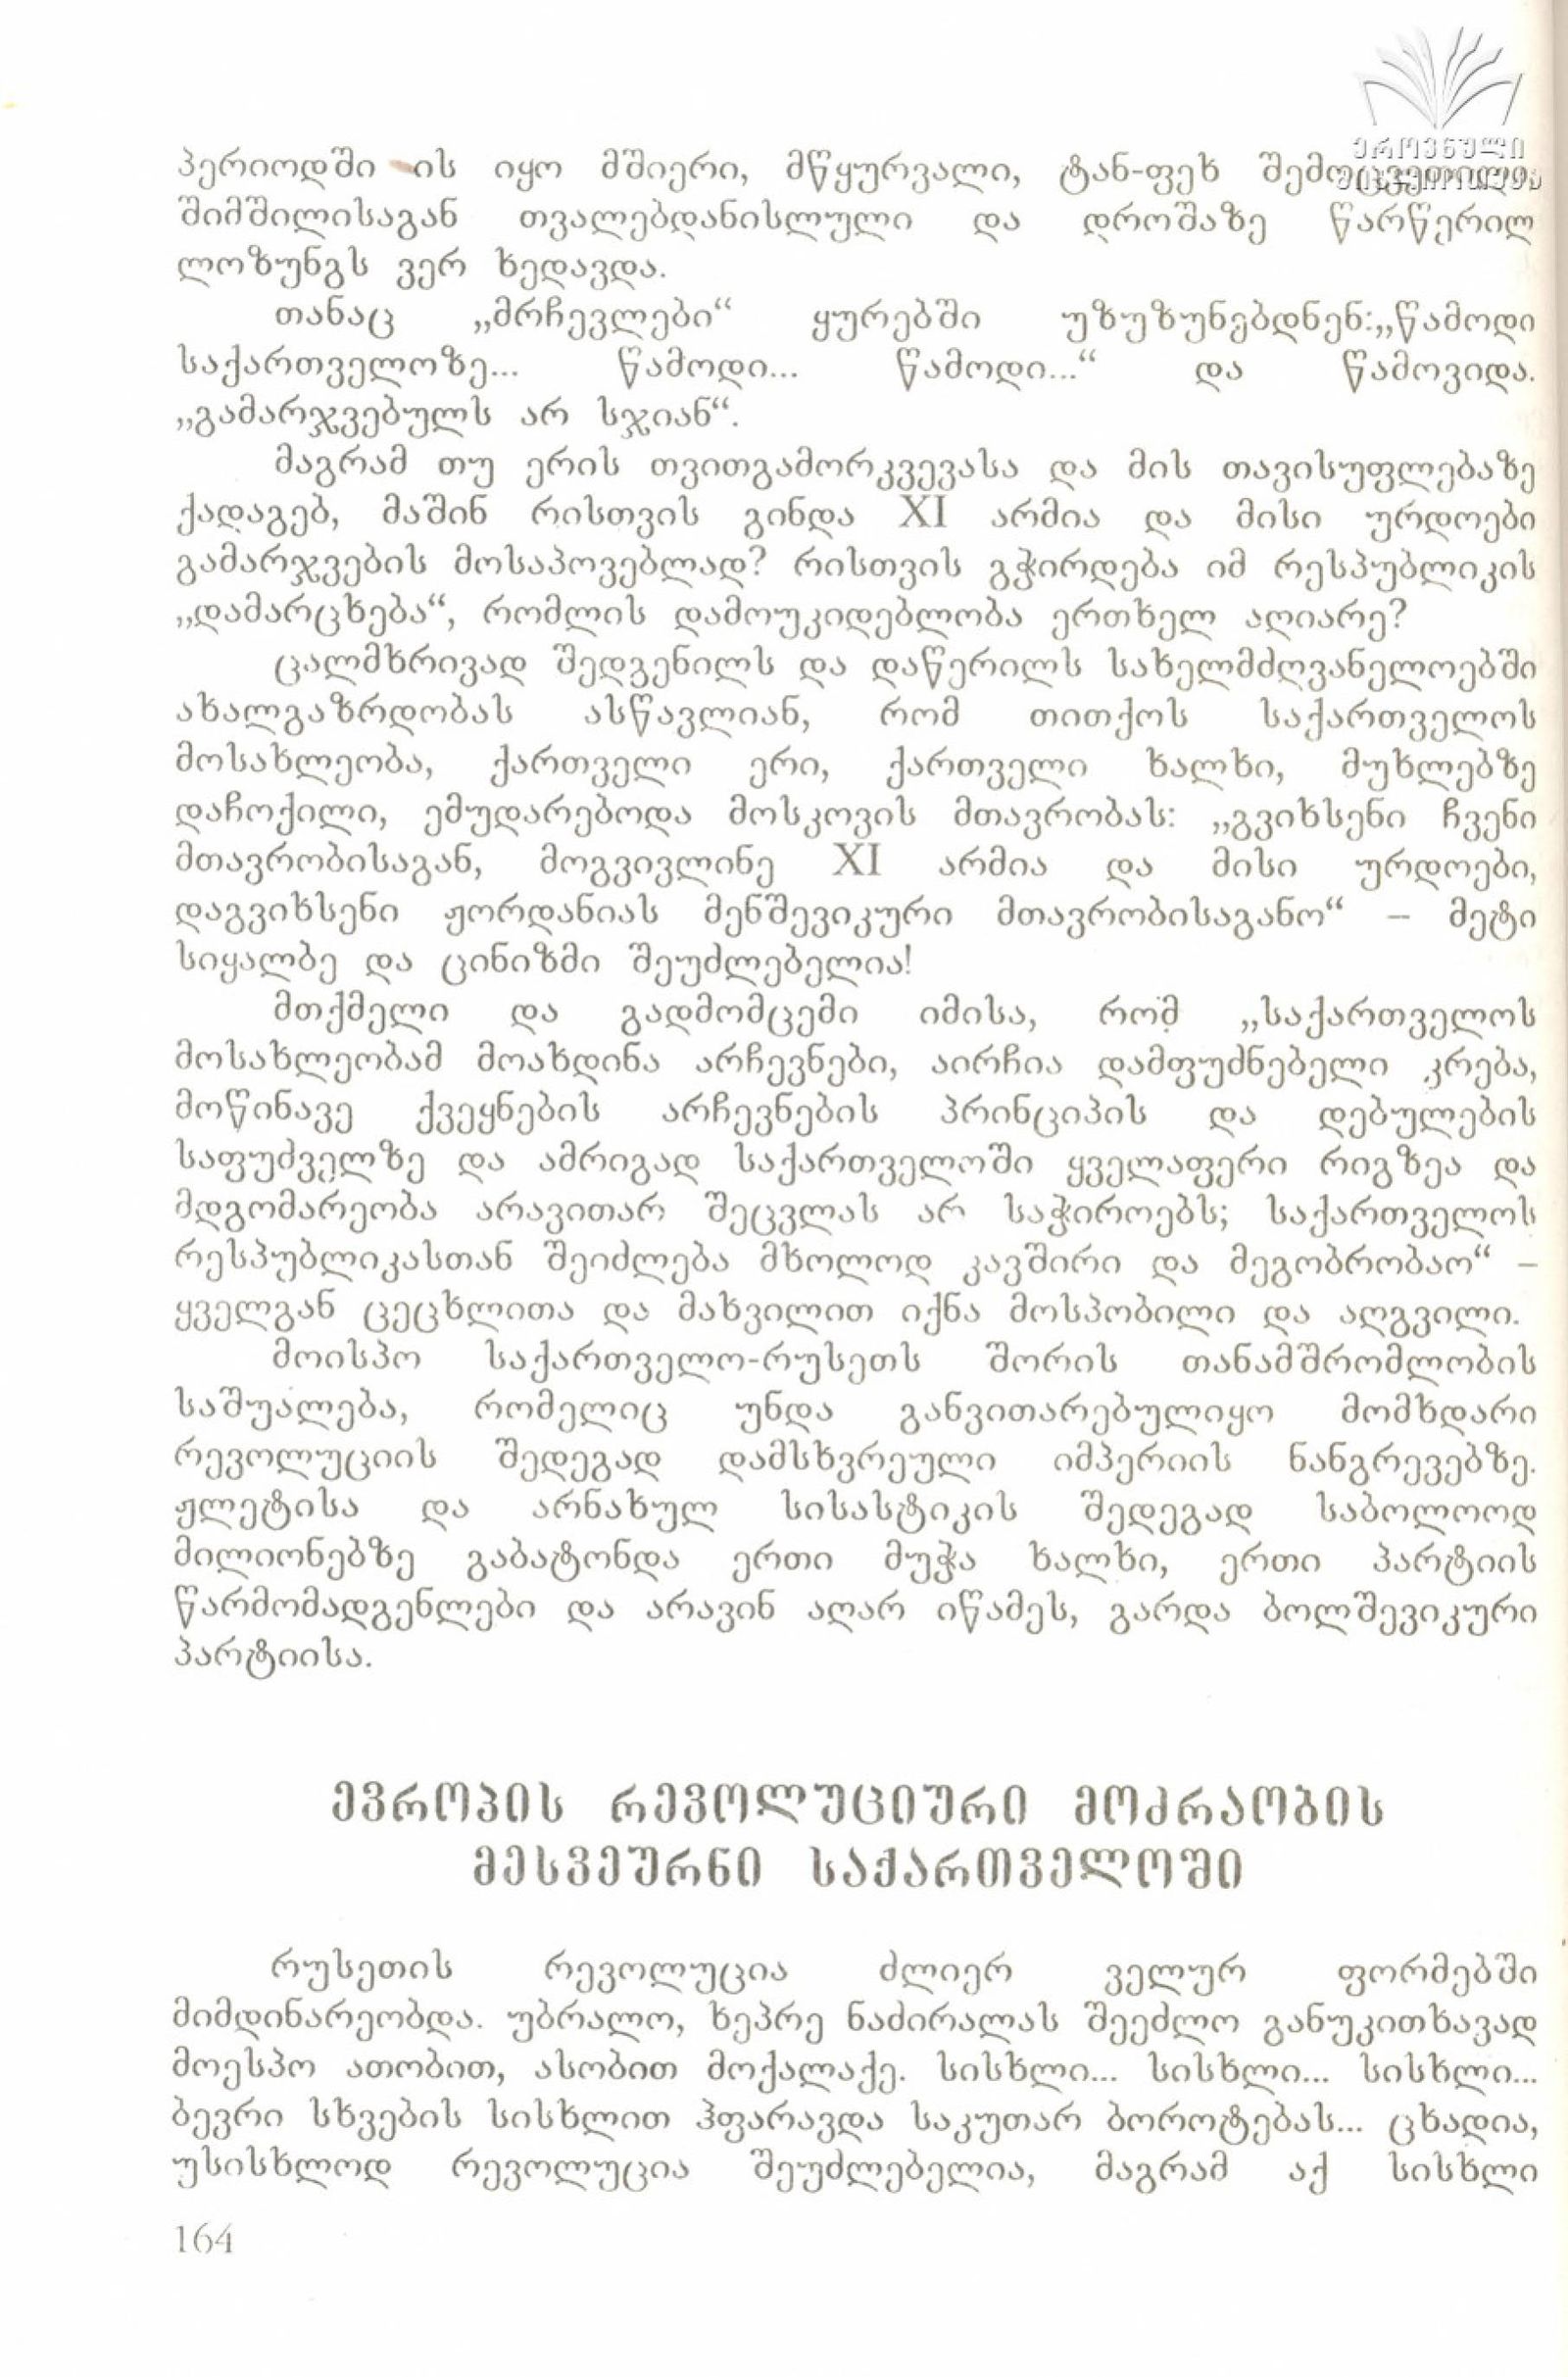 ეროვნული
ბიბლიოთეკა
პერიოდში ის იყო მშიერი, მწყურვალი, ტან-ფეხ შემოცვეთილი,
შიმშილისაგან თვალებდანისლული და დროშაზე წარწერილ
ლოზუნგს ვერ ხედავდა.
თანაც „მრჩევლები“ ყურებში უზუზუნებდნენ:„წამოდი
საქართველოზე... წამოდი... წამოდი...“ და წამოვიდა.
„გამარჯვებულს არ სჯიან“.
მაგრამ თუ ერის თვითგამორკვევასა და მის თავისუფლებაზე
ქადაგებ, მაშინ რისთვის გინდა XI არმია და მისი ურდოები
გამარჯვების მოსაპოვებლად? რისთვის გჭირდება იმ რესპუბლიკის
„დამარცხება“, რომლის დამოუკიდებლობა ერთხელ აღიარე?
ცალმხრივად შედგენილს და დაწერილს სახელმძღვანელოებში
ახალგაზრდობას ასწავლიან, რომ თითქოს საქართველოს
მოსახლეობა, ქართველი ერი, ქართველი ხალხი, მუხლებზე
დაჩოქილი, ემუდარებოდა მოსკოვის მთავრობას: „გვიხსენი ჩვენი
მთავრობისაგან, მოგვივლინე XI არმია და მისი ურდოები,
დაგვიხსენი ჟორდანიას მენშევიკური მთავრობისაგანო“ – მეტი
სიყალბე და ცინიზმი შეუძლებელია!
მთქმელი და გადმომცემი იმისა, რომ „საქართველოს
მოსახლეობამ მოახდინა არჩევნები, აირჩია დამფუძნებელი კრება,
მოწინავე ქვეყნების არჩევნების პრინციპის და დებულების
საფუძველზე და ამრიგად საქართველოში ყველაფერი რიგზეა და
მდგომარეობა არავითარ შეცვლას არ საჭიროებს; საქართველოს
რესპუბლიკასთან შეიძლება მხოლოდ კავშირი და მეგობრობაო“ –
ყველგან ცეცხლითა და მახვილით იქნა მოსპობილი და აღგვილი.
მოისპო საქართველო-რუსეთს შორის თანამშრომლობის
საშუალება, რომელიც უნდა განვითარებულიყო მომხდარი
რევოლუციის შედეგად დამსხვრეული იმპერიის ნანგრევებზე.
ჟლეტისა და არნახულ სისასტიკის შედეგად საბოლოოდ
მილიონებზე გაბატონდა ერთი მუჭა ხალხი, ერთი პარტიის
წარმომადგენლები და არავინ აღარ იწამეს, გარდა ბოლშევიკური
პარტიისა.
ევროპის რევოლუციური მოძრაობის
მესვეურნი საქართველოში
რუსეთის რევოლუცია ძლიერ ველურ ფორმებში
მიმდინარეობდა. უბრალო, ხეპრე ნაძირალას შეეძლო განუკითხავად
მოესპო ათობით, ასობით მოქალაქე. სისხლი... სისხლი... სისხლი...
ბევრი სხვების სისხლით ჰფარავდა საკუთარ ბოროტებას... ცხადია,
უსისხლოდ რევოლუცია შეუძლებელია, მაგრამ აქ სისხლი
164